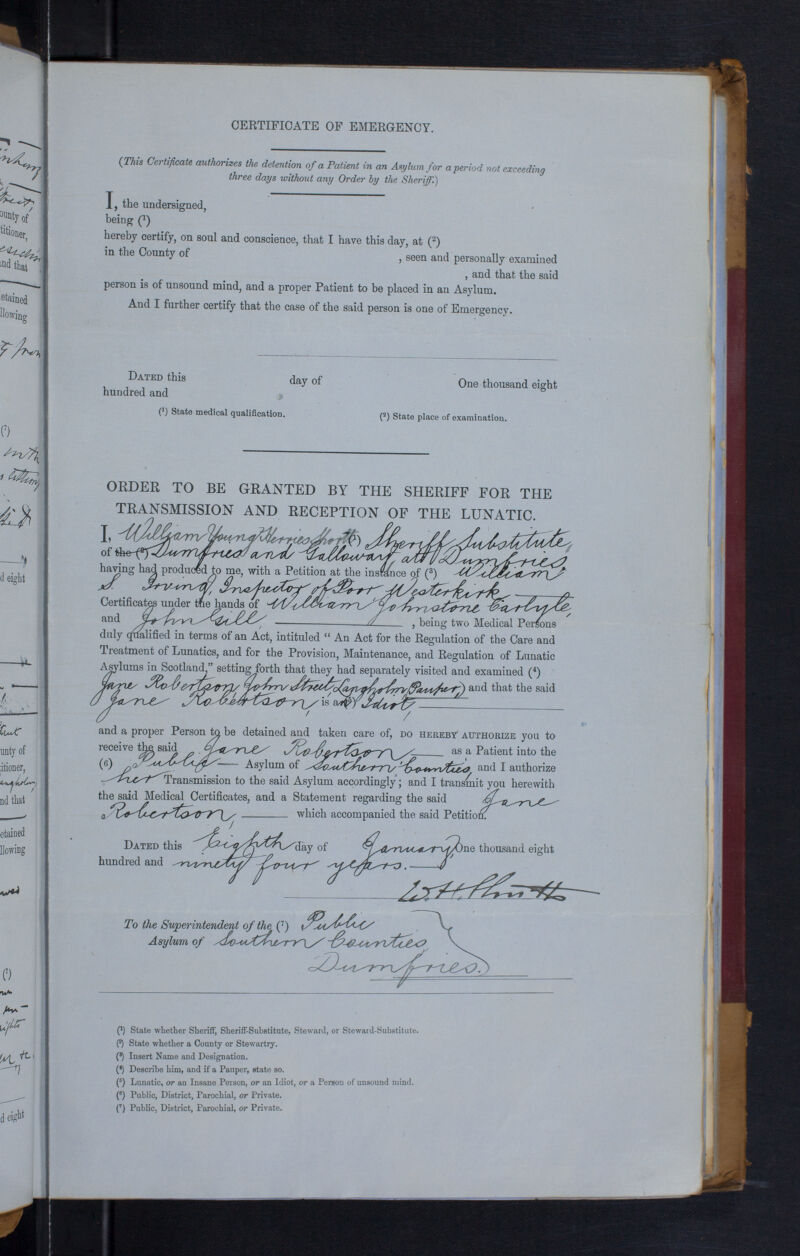 CERTIFICATE OF EMERGENCY.
(This Certificate authorizes the detention of a Patient in an Asylum for a period not exceeding
three days without any Order by the Sheriff.)
I, the undersigned,
being (1)
hereby certify, on soul and conscience, that I have this day, at (2)
in the County of , seen and personally examined
, and that the said
person is of unsound mind, and a proper Patient to be placed in an Asylum.
And I further certify that the case of the said person is one of Emergency.
DATED this day of One thousand eight
hundred and
(1) State medical qualification. (2) State place of examination.
ORDER TO BE GRANTED BY THE SHERIFF FOR THE
TRANSMISSION AND RECEPTION OF THE LUNATIC.
I, William Young Herries (1) Sheriff Substitute,
of the (2) Dumfries and Galloway at Dumfries
having had produced to me, with a Petition at the instance of (3) William
S Irving, Inspector of Poor, Westerkirk
Certificates under the hands of William Johnstone Carlyle,
and John Gill, , being two Medical Persons
duly qualified in terms of an Act, intituled “ An Act for the Regulation of the Care and
Treatment of Lunatics, and for the Provision, Maintenance, and Regulation of Lunatic
Asylums in Scotland,” setting forth that they had separately visited and examined (4)
Jane Robertson, John Street, Langholm (Pauper) and that the said
Jane Robertson, is an (5) Idiot,
and a proper Person to be detained and taken care of, DO HEREBY AUTHORIZE you to
receive the said Jane Robertson, as a Patient into the
(6) Public Asylum of Southern Counties, and I authorize
her Transmission to the said Asylum accordingly; and I transmit you herewith
the said Medical Certificates, and a Statement regarding the said Jane
Robertson, which accompanied the said Petition.
DATED this Eighth day of January, One thousand eight
hundred and ninety four years.
To the Superintendent of the (7) Public
Asylum of Southern Counties
Dumfries.
(1) State whether Sheriff, Sheriff-Substitute, Steward, or Steward-Substitute.
(2) State whether a County or Stewartry.
(3) Insert Name and Designation.
(4) Describe him, and if a Pauper, state so.
(5) Lunatic, or an Insane Person, or an Idiot, or a Person of unsound mind.
(6) Public, District, Parochial, or Private.
(7) Public, District, Parochial, or Private.